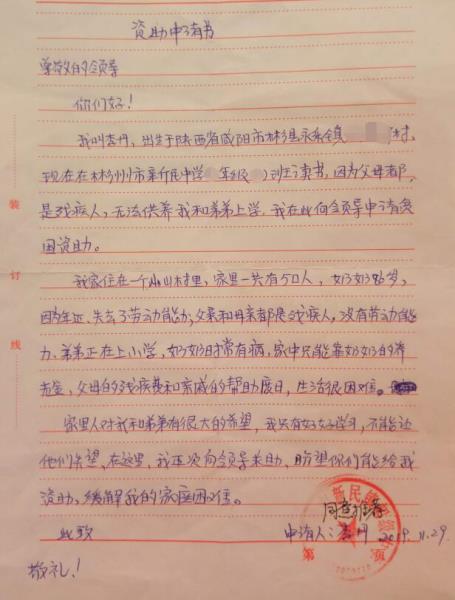 资助申请书
尊敬的领导
你们好!
我叫李丹,出生于陕西省咸阳市彬县永乐镇 村,
现在在彬州市新民中学 年级 班读书,因为父母都
是残疾人,无法供养我和弟弟上学,我在此向领导申请贫
困资助。
我家住在一个小山村里,家里一共有5口人,奶奶86岁,
因年迈,失去了劳动能力,父亲和母亲都是残疾人,没有劳动能
力,弟弟正在上小学,奶奶时常有病,家中只能靠奶奶的养
老金,父母的残疾费和亲戚的帮助度日,生活很困难。
家里人对我和弟弟有很大的希望,我只有好好学习,不能让
他们失望,在这里,我再次向领导求助,盼望你们能给我
资助,缓解我的家庭困难。
同意推荐
此致
申请人:李丹 2019.11.29.
敬礼!
装
订
线
第 页
新民